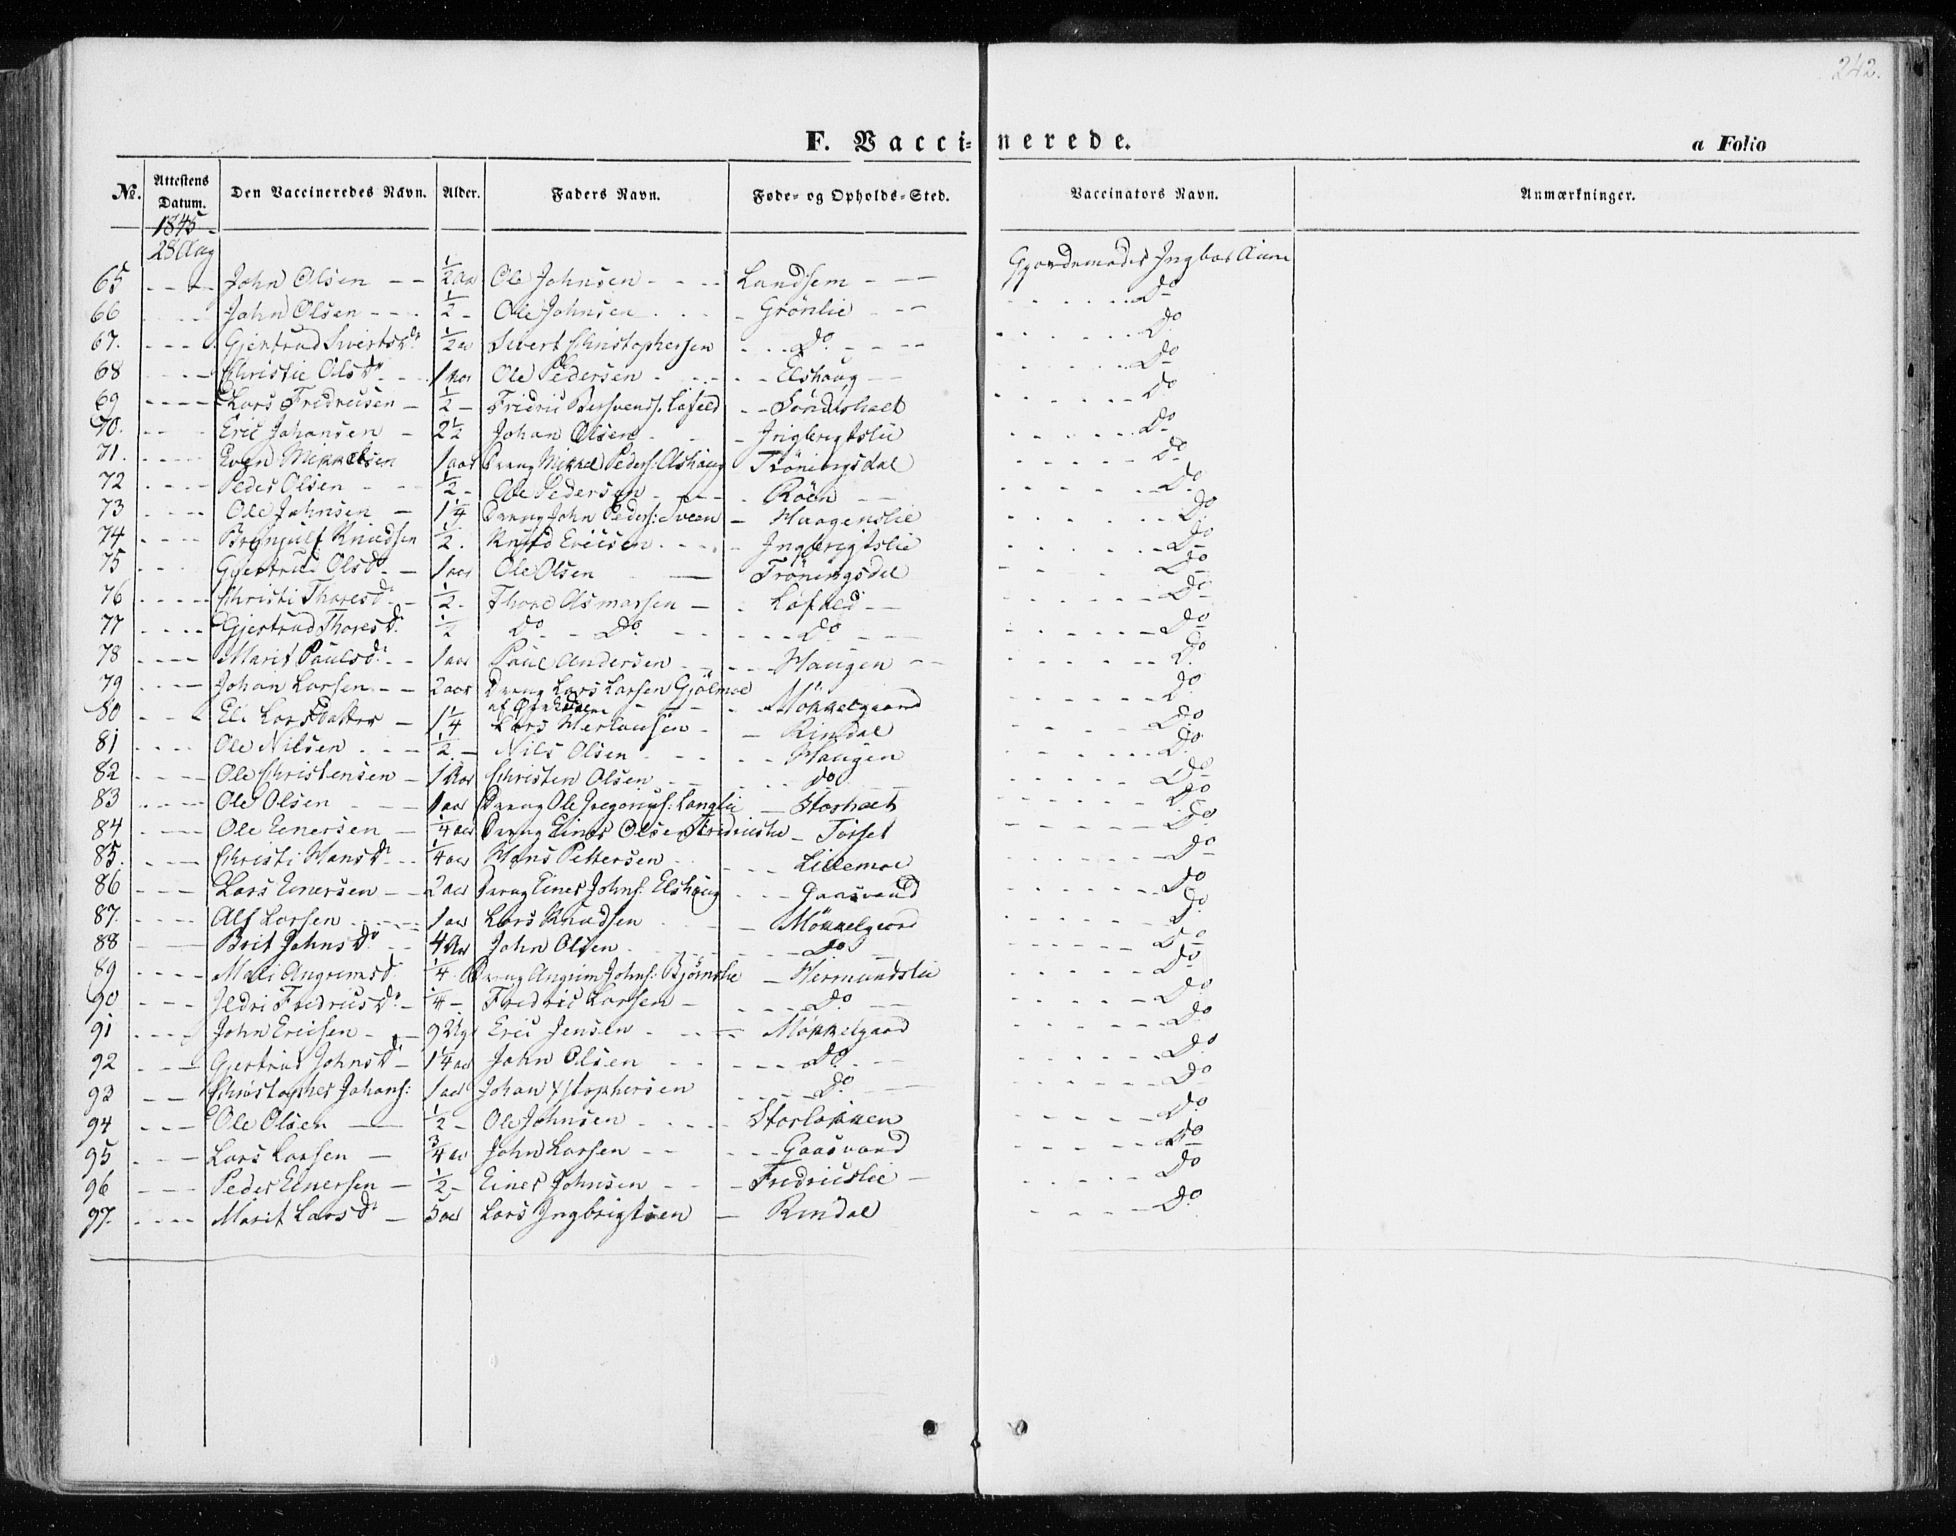 242.
F. Vaccinerede.
a Folio
No. Attestens Datum. Den Vaccineredes Navn. Alder. Faders Navn. Føde- og Opholds-Sted. Vaccinators Navn. Anmærkninger.
1845
28 Aug
65 - - - John Olsen - - 1/2 aar Ole Johnsen - - - Landsem - - - Gjordemoder Aune
66 - - - John Olsen - - - 1/2 - Ole Johnsen - - Grønlie - - - - - Do
67. - - - Gjertrud Sivertsdr 1/2 aar Sivert Christophersen - - - Do - - - - - - Do
68 - - - Christie Olsdr - 1 aar Ole Pedersen - - - - Elshaug - - - - - Do
69 - - - Lars Fredricsen - 1/2 - Fridric - - - - - Do
70. - - - Eric Johansen - 2 1/2 Johan Olsen - - Ingbrigtslie - - - Do
71. - - - Even Mikkelsen 1 aar Dræng Mikkel Peders: Elshaug Tröningsdal - - - Do
72 - - - Peder Olsen - - 1/2 - Ole Pedersen - - - Röen - - - - - Do
73 - - - Ole Johnsen - 1 1/4 Dræng John Peders: Sveen - Haagenslie - - - Do
74 - - - Brynjulf Knudsen 1/2. Knud Ericsen - - - Ingbrigtslie - - - Do
75 - - - Gjertrud Olsdr - 1 aar Ole Olsen - Tröningsdal - - - Do
76 - - - Christi Thoresdr - 1/2 - Thore Asmarsen - - Løfald - - - - - Do
77 - - - Gjertrud Thoresdr. 1/2 Do - Do - - - - Do - - - - - - Do
78 - - - Marit Paulsdr - - 1 aar Paul Andersen - - - - Haugen - - - - - Do
79 - - - Johan Larsen - - 2 aar Dræng Lars Larsen Gjølmoe
af - - - Møkkelgaard - - - Do
80 - - - Eli Larsdatter - 1 1/4 Lars - - Rindal - - - Do
81 - - - Ole Nilsen - - - 1/2 - Nils Olsen - - - Haugen - - - Do
82 - - - Ole Christensen - 1 aar Christen Olsen - - - Do - - - - Do
83 - - - Ole Olsen - - - 1 aar Dræng Ole Gregorius: Langlie - Storholt - - - Do
84 - - - Ole Einersen - 1/4 aar Dræng Einer Olsen Fridricslie - Torset - - - Do
85. - - - Christi Hansdr - - 1/4 aar Hans Pettersen - - - - Lillemoe - - - Do
86 - - - Lars Einersen - - 2 aar Dræng Einer Johns: Elshaug - - - Gaasvand - - - Do
87. - - - Alf Larsen - - - 1 aar Lars Knudsen - - Møkkelgaard - - - Do
88 - - - Brit Johnsdr - - 4 aar John Olsen - - - Do - - - - Do
89 - - - Mali Angrimsd. 1/4 Dræng Angrim Johns: Bjørnslie - Hermundslie - - - Do
90 - - - Ildri Fredricsdr - 1/4 - Fridric Larsen - - - - Do - - - - - Do
91 - - - John Ericsen - - 9 Ugr Eric Jensen - - - Møkkelgaard - - - Do
92 - - - Gjertrud Johnsdr - 1 1/4 aar John Olsen - - - Do - - - - - Do
93 - - Christopher Johans: 1 aar Johan Xstophersen - - - Do - - - - Do
94 - - - Ole Olsen - 1/2 - Ole Johnsen - - - Storløkken - - - Do
95 - - - Lars Larsen - 3/4 aar John Larsen - - - - - Gaasvand - - - Do
96 - - - Peder Einersen - 1/2 - Einer Johnsen - - - Fredricslie - - - - Do
97. - - - Marit Larsdr - 5 aar Lars Ingbrigtsen - Rindal - - - Do